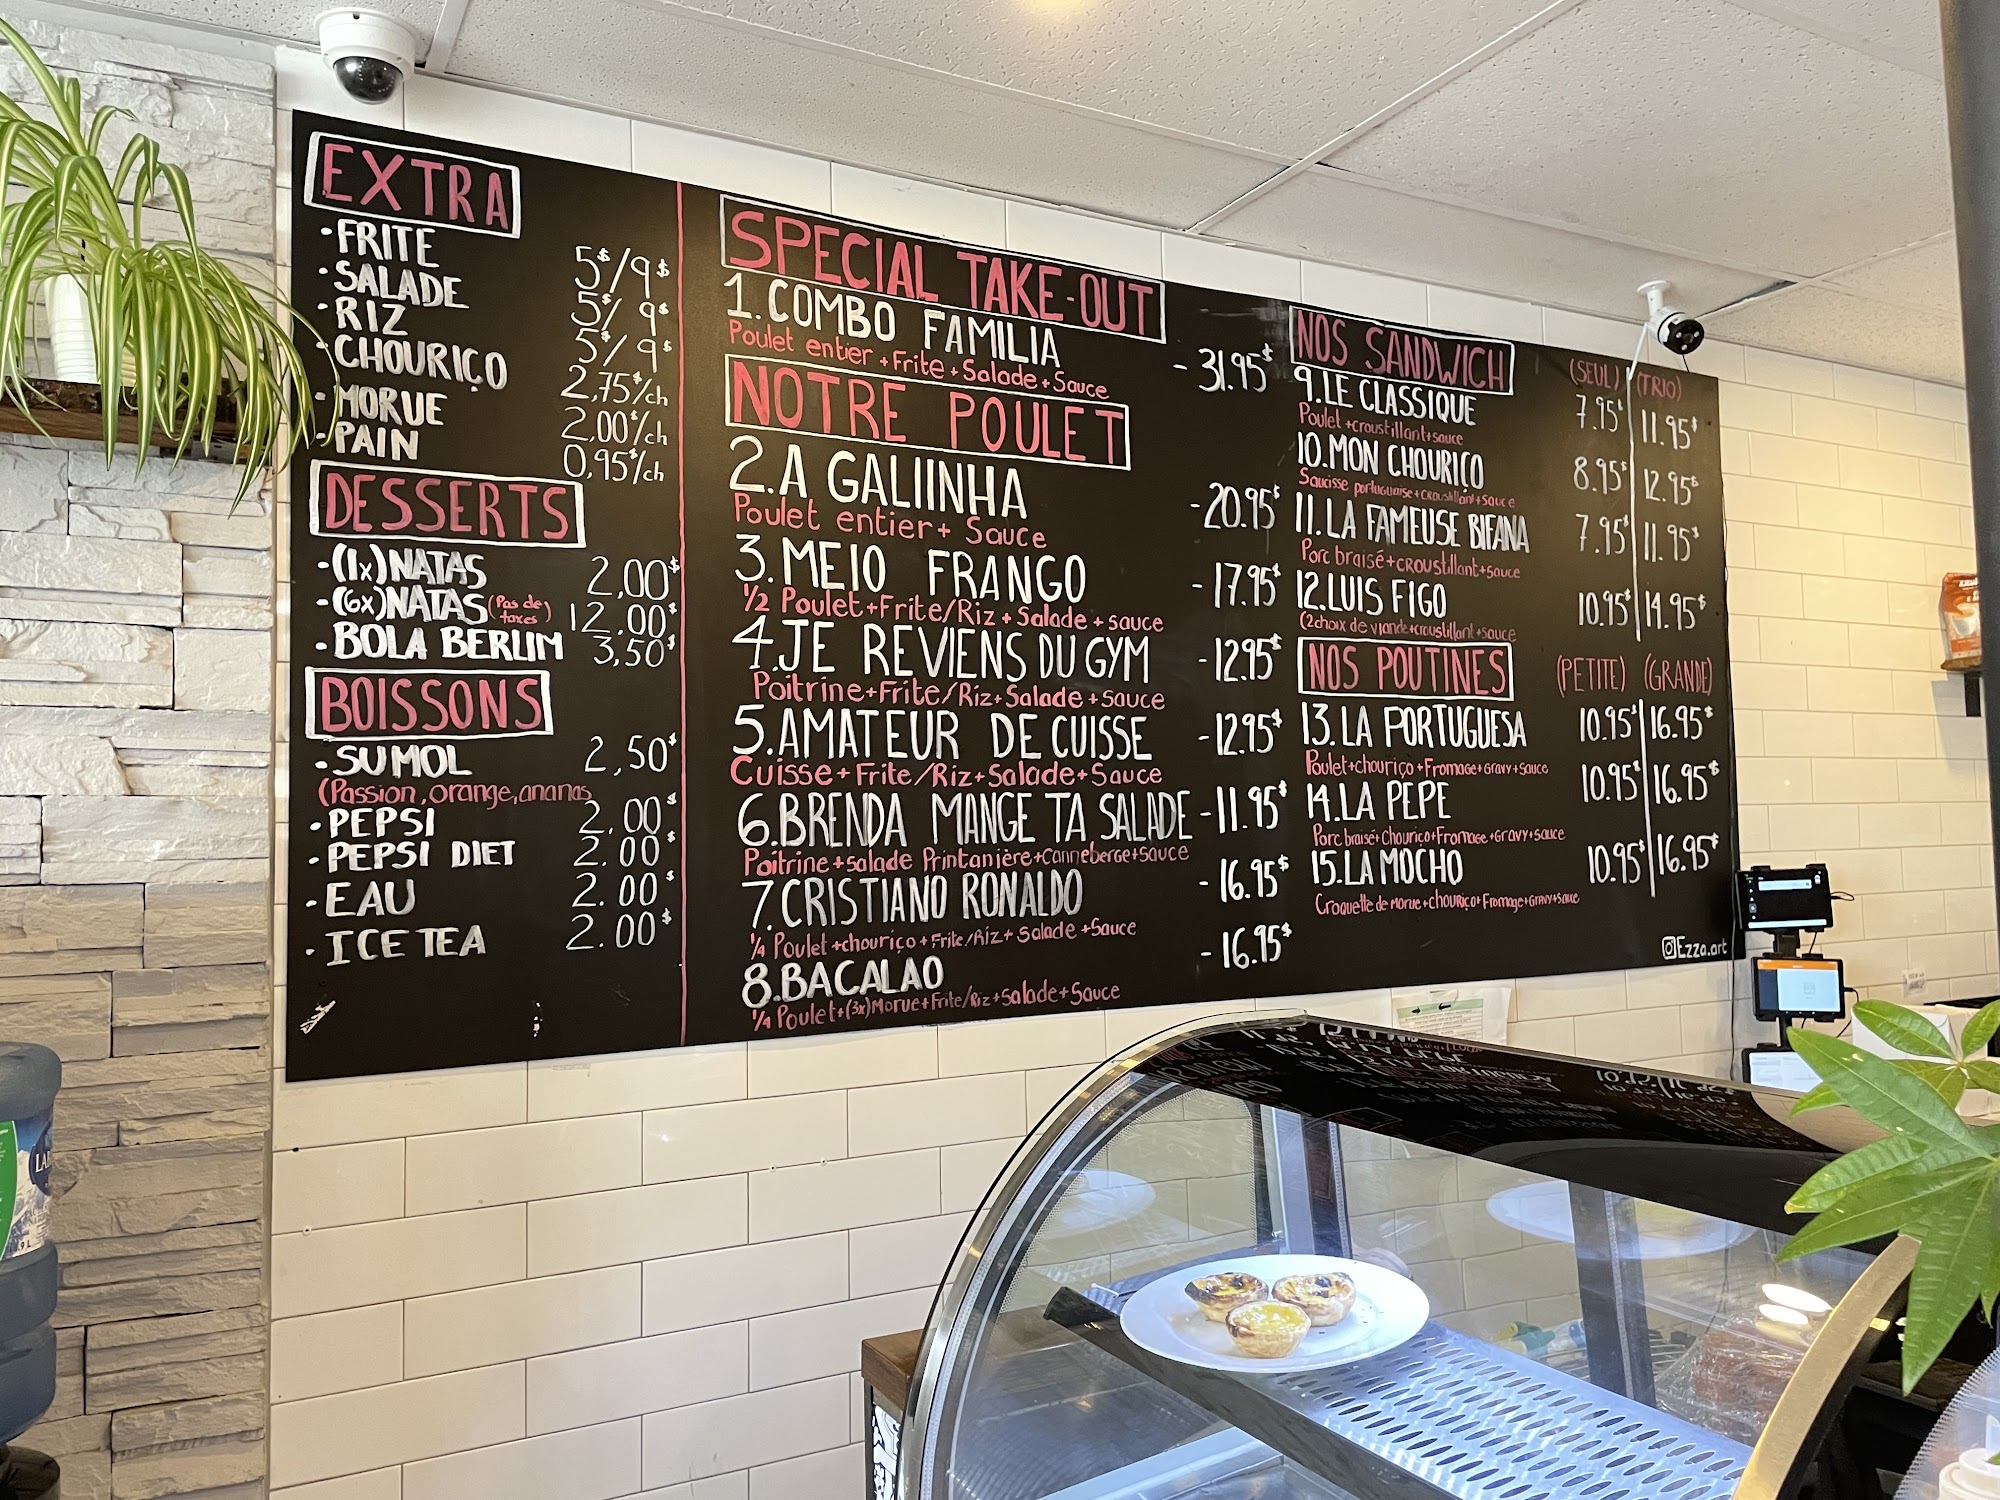 EXTRA
• FRITE 5$/9$
• SALADE 5$/9$
• RIZ 5$/9$
• CHOURIÇO 2,75$/ch
• MORUE 2,00$/ch
• PAIN 0,95$/ch
DESSERTS
• (1x) NATAS 2,00$
• (6x) NATAS (Pas de taxes) 12.00$
• BOLA BERLIM 3,50$
BOISSONS
• SUMOL 2,50$
(Passion, orange, ananas
• PEPSI 2.00$
• PEPSI DIET 2.00$
• EAU 2.00$
• ICE TEA 2.00$
SPECIAL TAKE-OUT
1. COMBO FAMILIA - 31.95$
Poulet entier + Frite + Salade + Sauce
NOTRE POULET
2. A GALIINHA - 20.95$
Poulet entier + Sauce
3. MEIO FRANGO - 17.95$
1/2 Poulet + Frite/Riz + Salade + sauce
4. JE REVIENS DU GYM - 12.95$
Poitrine + Frite/Riz + Salade + sauce
5. AMATEUR DE CUISSE - 12.95$
Cuisse + Frite/Riz + Salade + Sauce
6. BRENDA MANGE TA SALADE - 11.95$
Poitrine + salade Printanière + canneberge + sauce
7. CRISTIANO RONALDO - 16.95$
1/4 Poulet + chouriço + Frite/Riz + Salade + Sauce
8. BACALAO - 16.95$
1/4 Poulet + (3x) Morue + Frite/Riz + Salade + Sauce
NOS SANDWICH (SEUL) (TRIO)
9. LE CLASSIQUE 7.95$ 11.95$
Poulet + croustillant + sauce
10. MON CHOURIÇO 8.95$ 12.95$
Saucisse portuguaise + croustillant + sauce
11. LA FAMEUSE BIFANA 7.95$ 11.95$
Porc braisé + croustillant + sauce
12. LUIS FIGO 10.95$ 14.95$
(2 choix de viande + croustillant + sauce
NOS POUTINES (PETITE) (GRANDE)
13. LA PORTUGUESA 10.95$ 16.95$
Poulet + chouriço + Fromage + Gravy + sauce
14. LA PEPE 10.95$ 16.95$
Porc braisé + chouriço + Fromage + Gravy + sauce
15. LA MOCHO 10.95$ 16.95$
Croquette de morue + chouriço + Fromage + Gravy + sauce
Ezza.art